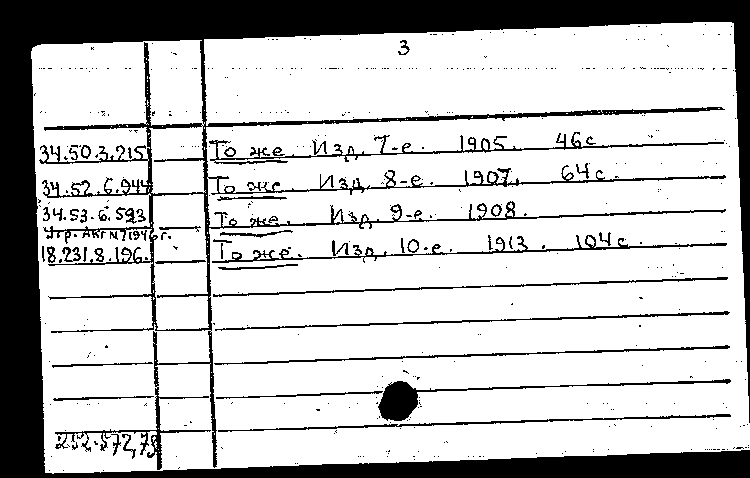 3
34.50.3.215 То же Изд. 7-е. 1905. 46с
34.52.6.944 То же. Изд. 8-е. 1907. 64с.
34.53.6.593 То же. Изд. 9-е. 1908.
Утр. Акт №7 1946 г.
18.231.8.196. То же. Изд. 10-е. 1913. 104с.